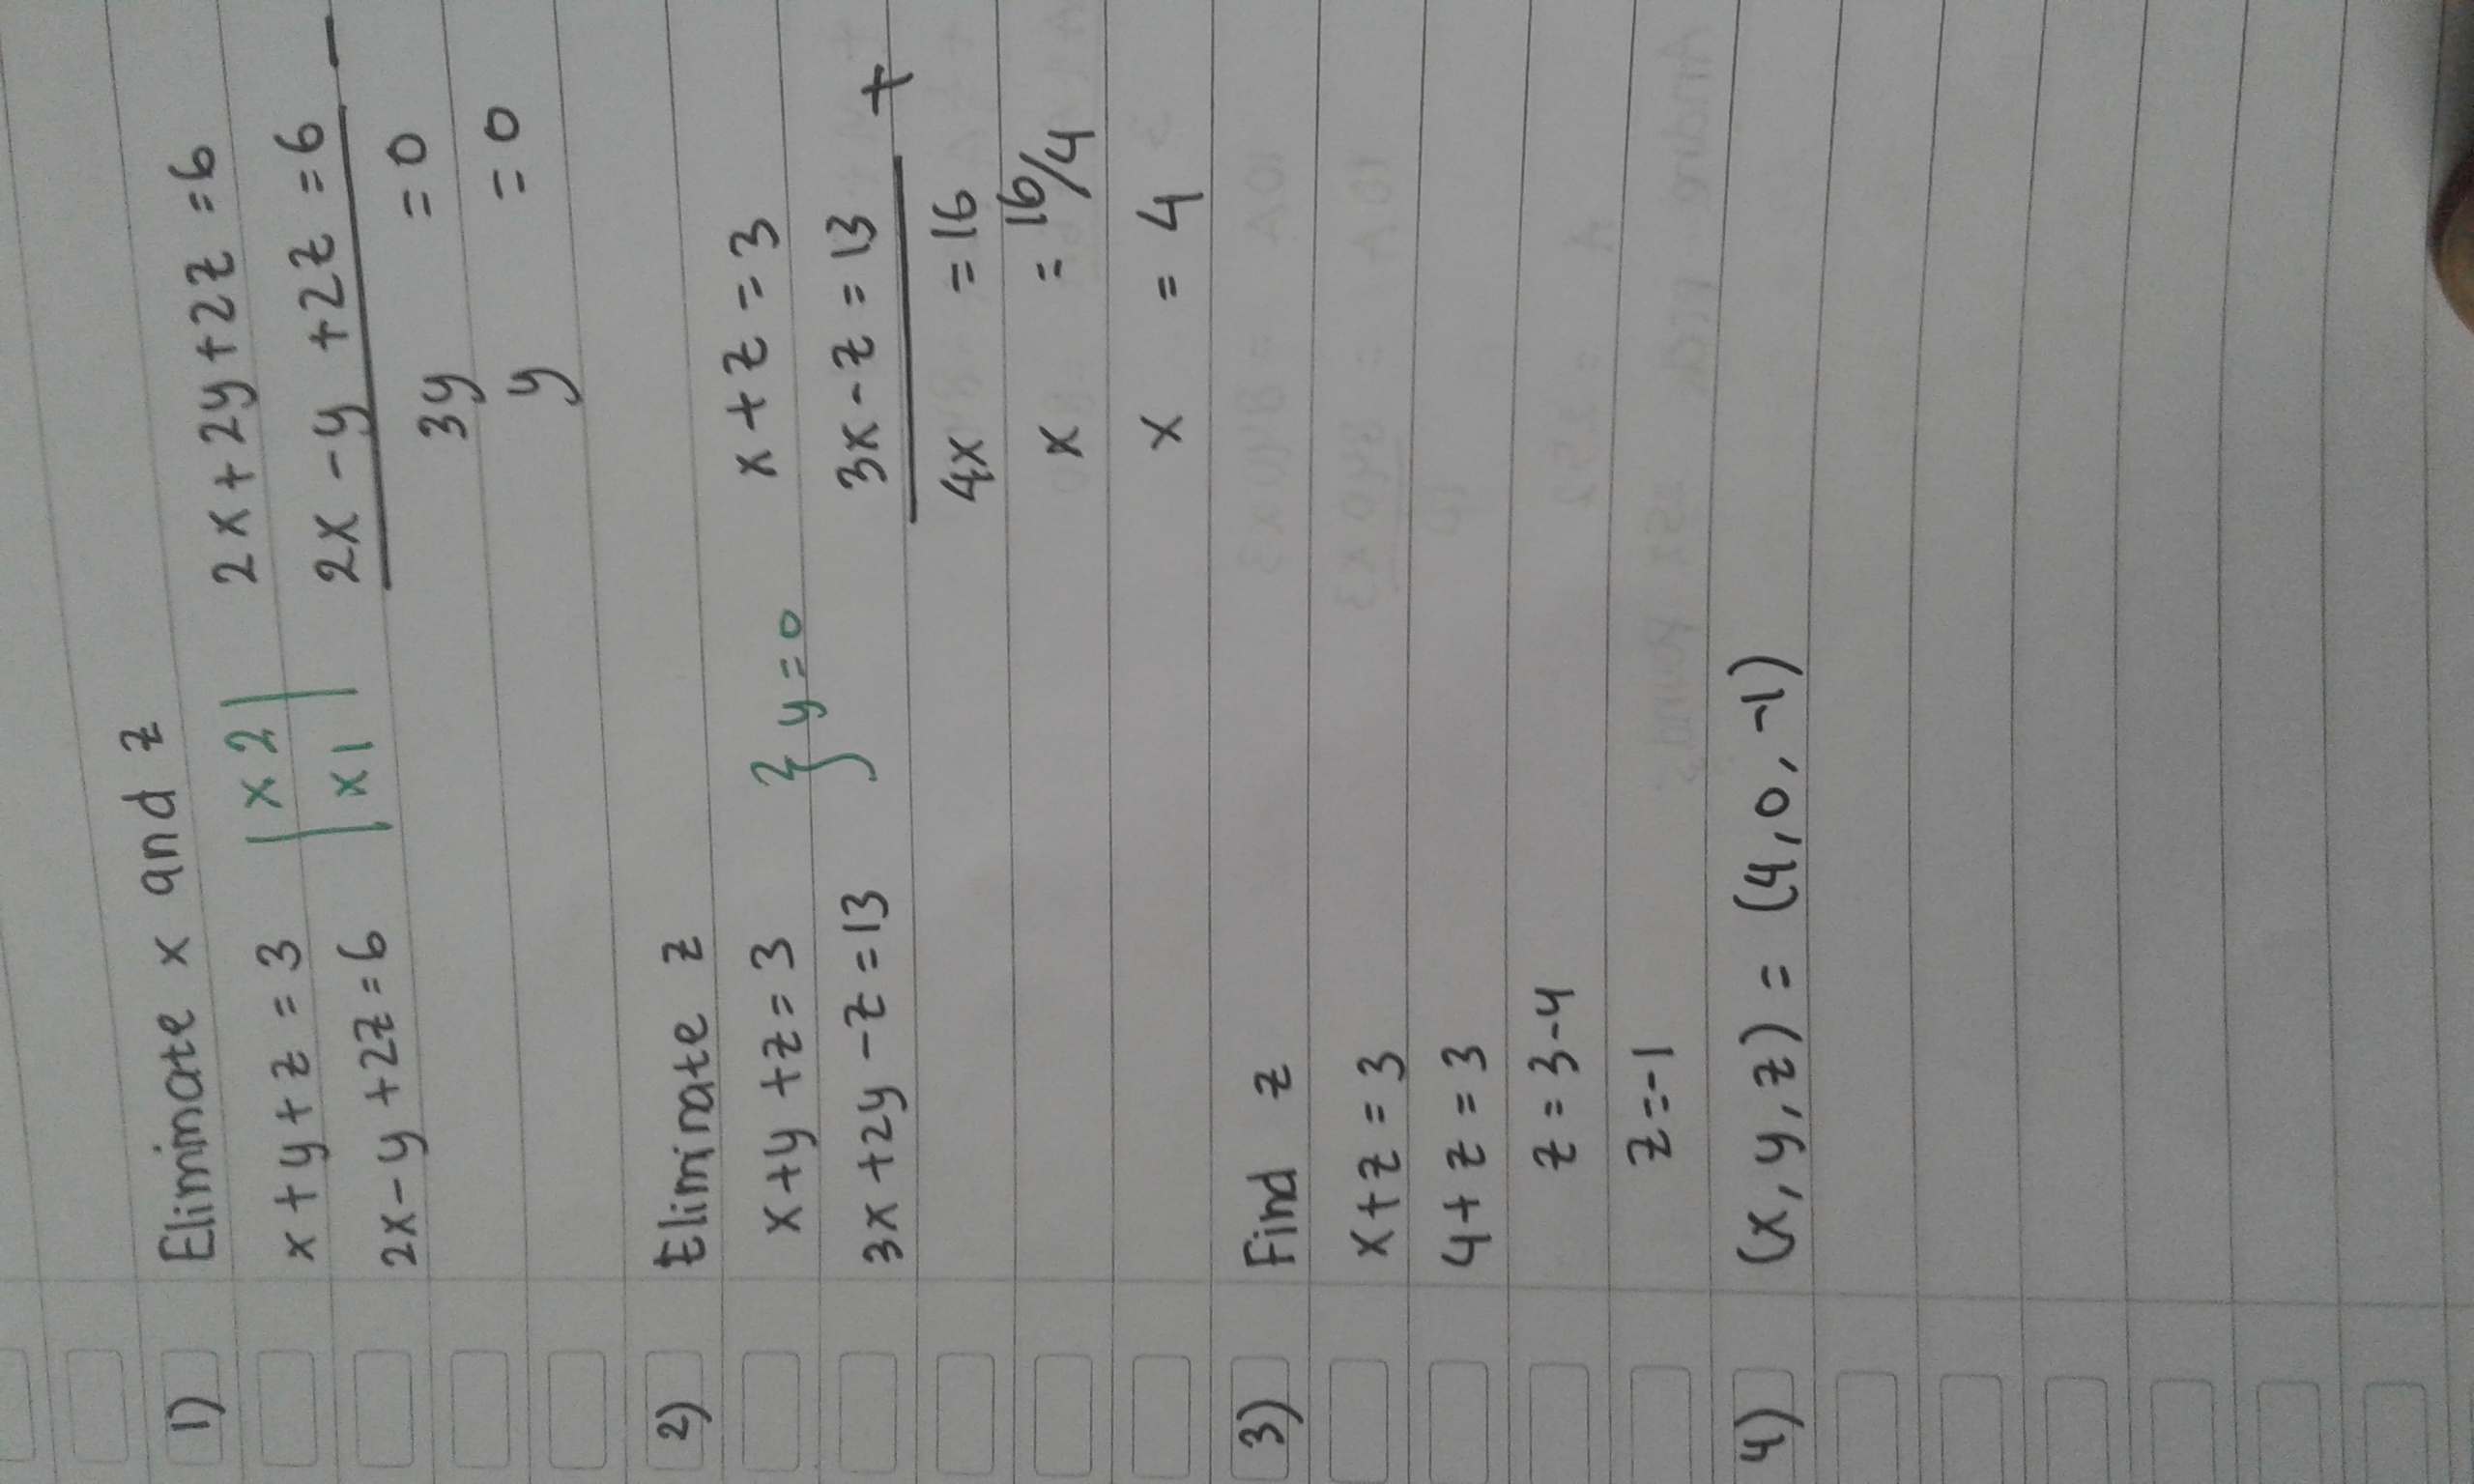 1) Eliminate x and z
x + y + z = 3 | x 2 | 2x + 2y + 2z = 6
2x - y + 2z = 6 | x 1 | 2x - y + 2z = 6 -
3y = 0
y = 0
2) Eliminate z
x + y + z = 3 } y = 0 x + z = 3
3x + 2y - z = 13 3x - z = 13 +
4x = 16
x = 16/4
x = 4
3) Find z
x + z = 3
4 + z = 3
z = 3 - 4
z = -1
4) (x, y, z) = (4, 0, -1)